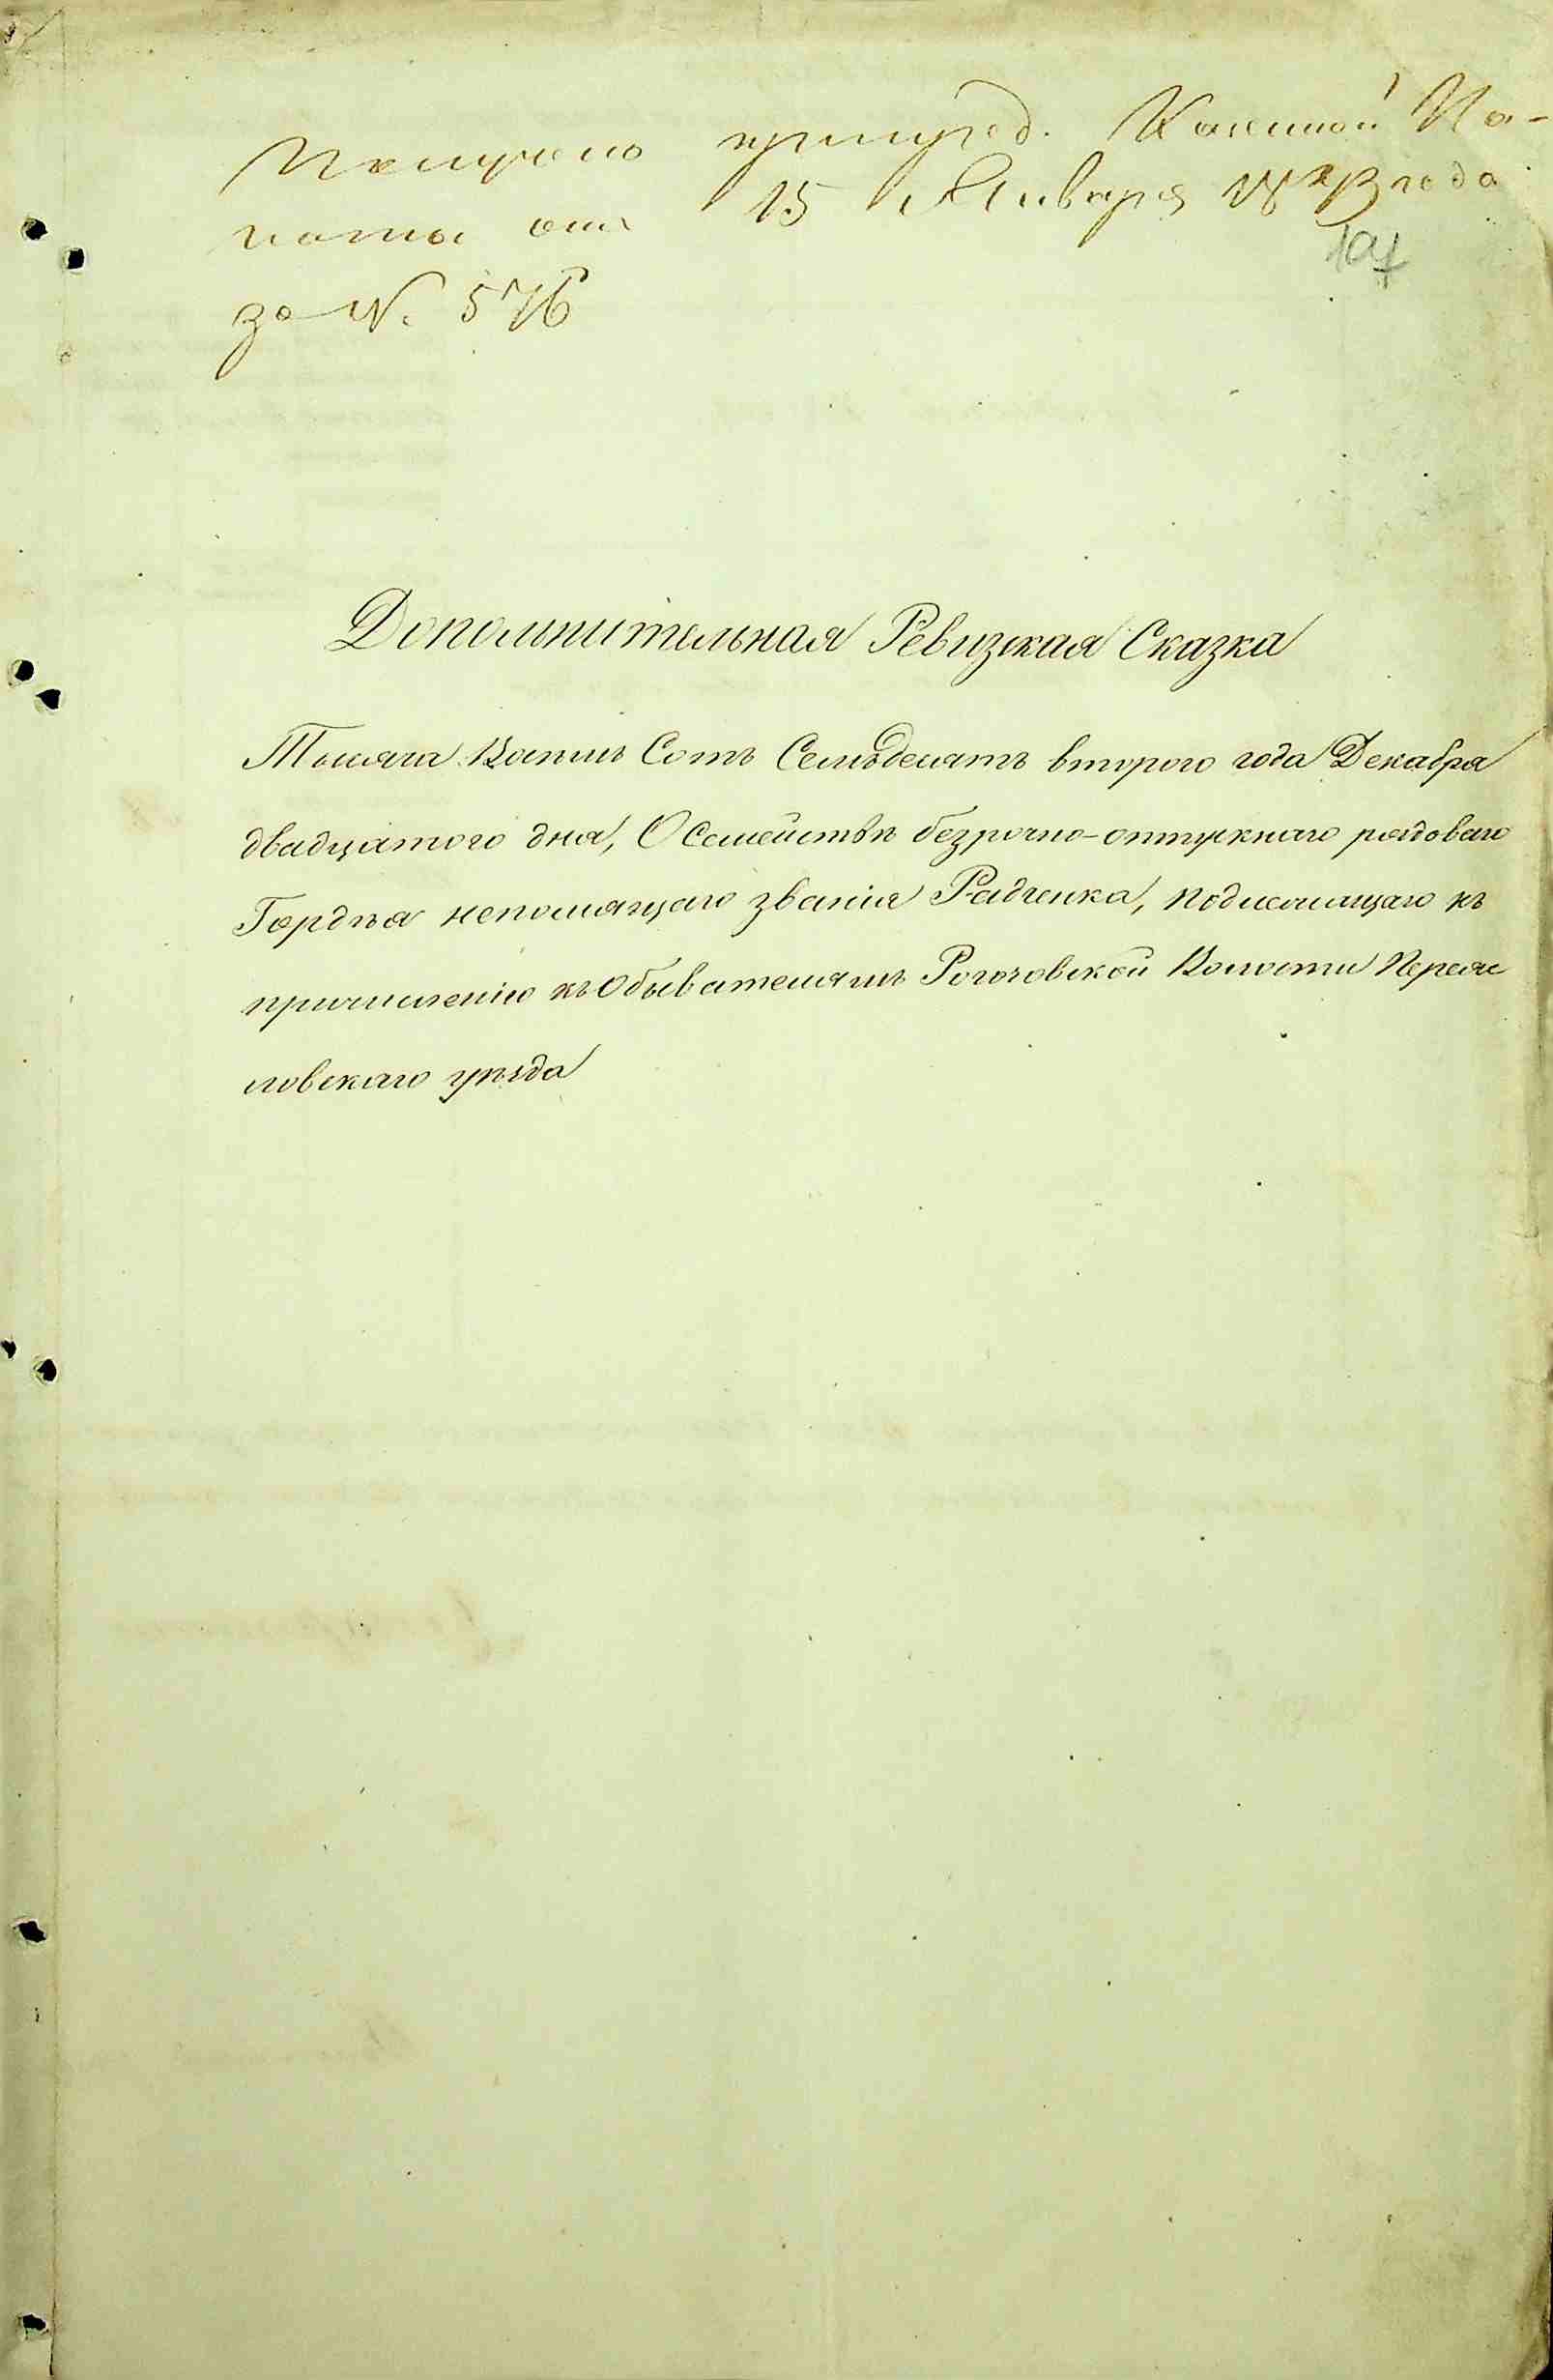 Получено при пред. Казенной Па-
латы отъ 15 Января 1873 года
за N. 576
107
Дополнительная Ревизская Сказка
Тысяча Восемь Сотъ Семьдесятъ второго года Декабря
двадцатого дня, О Семействѣ безрочно-отпускнаго рядоваго
Гордѣя непомнящаго званія Радченка, подлежащаго къ
причисленію къ Обывателямъ Рогозовской Волости Переяс
ловскаго уѣзда